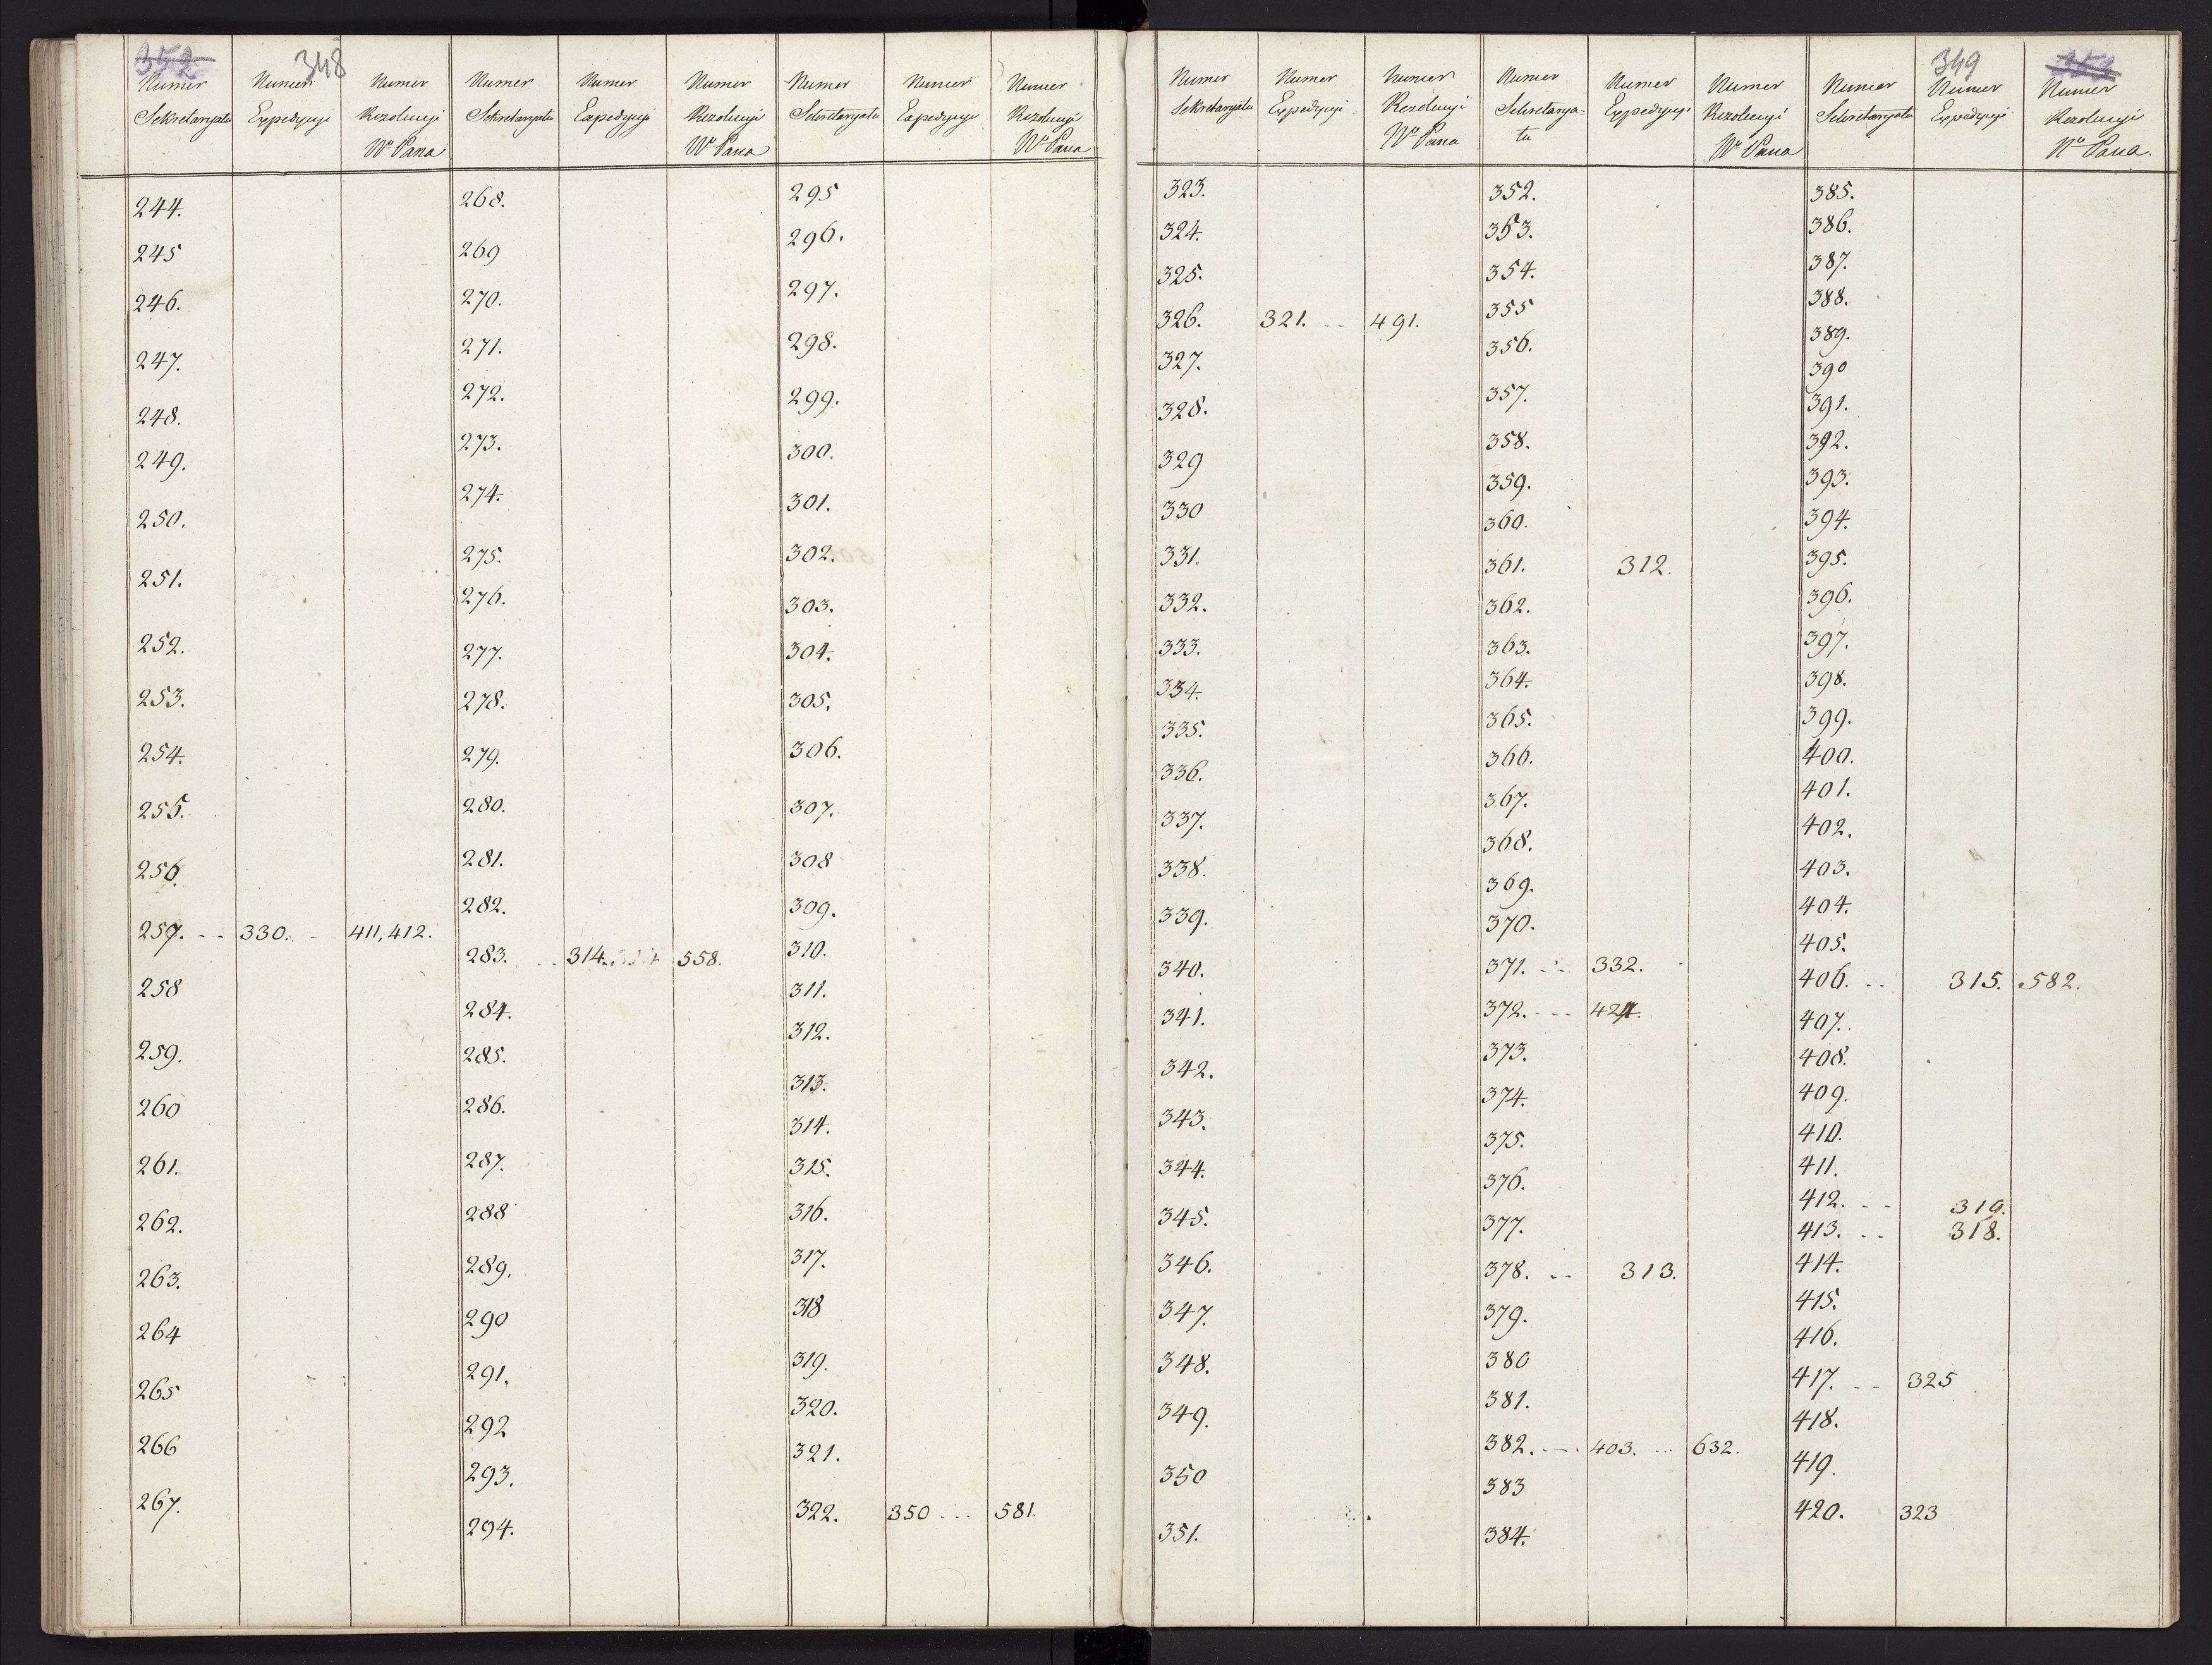 352 348
Numer Sekretaryatu Numer Expedycyi Numer Rezolucyi Wo Pana Numer Sekretaryatu Numer Expedycyi Numer Rezolucyi Wo Pana Numer Sekretaryatu Numer Expedycyi Numer Rezolucyi Wo Pana
244.
245
246.
247.
248.
249.
250.
251.
252.
253.
254.
255.
256.
257. -- 330. - 411, 412.
258
259.
260
261.
262.
263.
264
265
266
267.
268.
269
270.
271.
272.
273.
274.
275.
276.
277.
278.
279.
280.
281.
282.
283. .. 314. 558.
284.
285.
286.
287.
288
289.
290
291.
292
293.
294.
295
296.
297.
298.
299.
300.
301.
302.
303.
304.
305.
306.
307.
308
309.
310.
311.
312.
313.
314.
315.
316.
317.
318
319.
320.
321.
322. 350 ... 581.
349
Numer Sekretaryatu Numer Expedycyi Numer Rezolucyi Wo Pana Numer Sekretarya=tu Numer Expedycyi Numer Rezolucyi Wo Pana Numer Sekretaryatu Numer Expedycyi Numer Rezolucyi Wo Pana.
323.
324.
325.
326. 321. -- 491.
327.
328.
329
330
331.
332.
333.
334.
335.
336.
337.
338.
339.
340.
341.
342.
343.
344.
345.
346.
347.
348.
349.
350
351.
352.
353.
354.
355
356.
357.
358.
359.
360.
361. 312.
362.
363.
364.
365.
366.
367.
368.
369.
370.
371. -- 332.
372. --- 424.
373.
374.
375.
376.
377.
378. -- 313.
379.
380
381.
382. --- 403. ... 632.
383
384.
385.
386.
387.
388.
389.
390
391.
392.
393.
394.
395.
396.
397.
398.
399.
400.
401.
402.
403.
404.
405.
406. -- 315. 582.
407.
408.
409.
410.
411.
412. -- 319.
413. -- 318.
414.
415.
416.
417. -- 325
418.
419.
420. 323